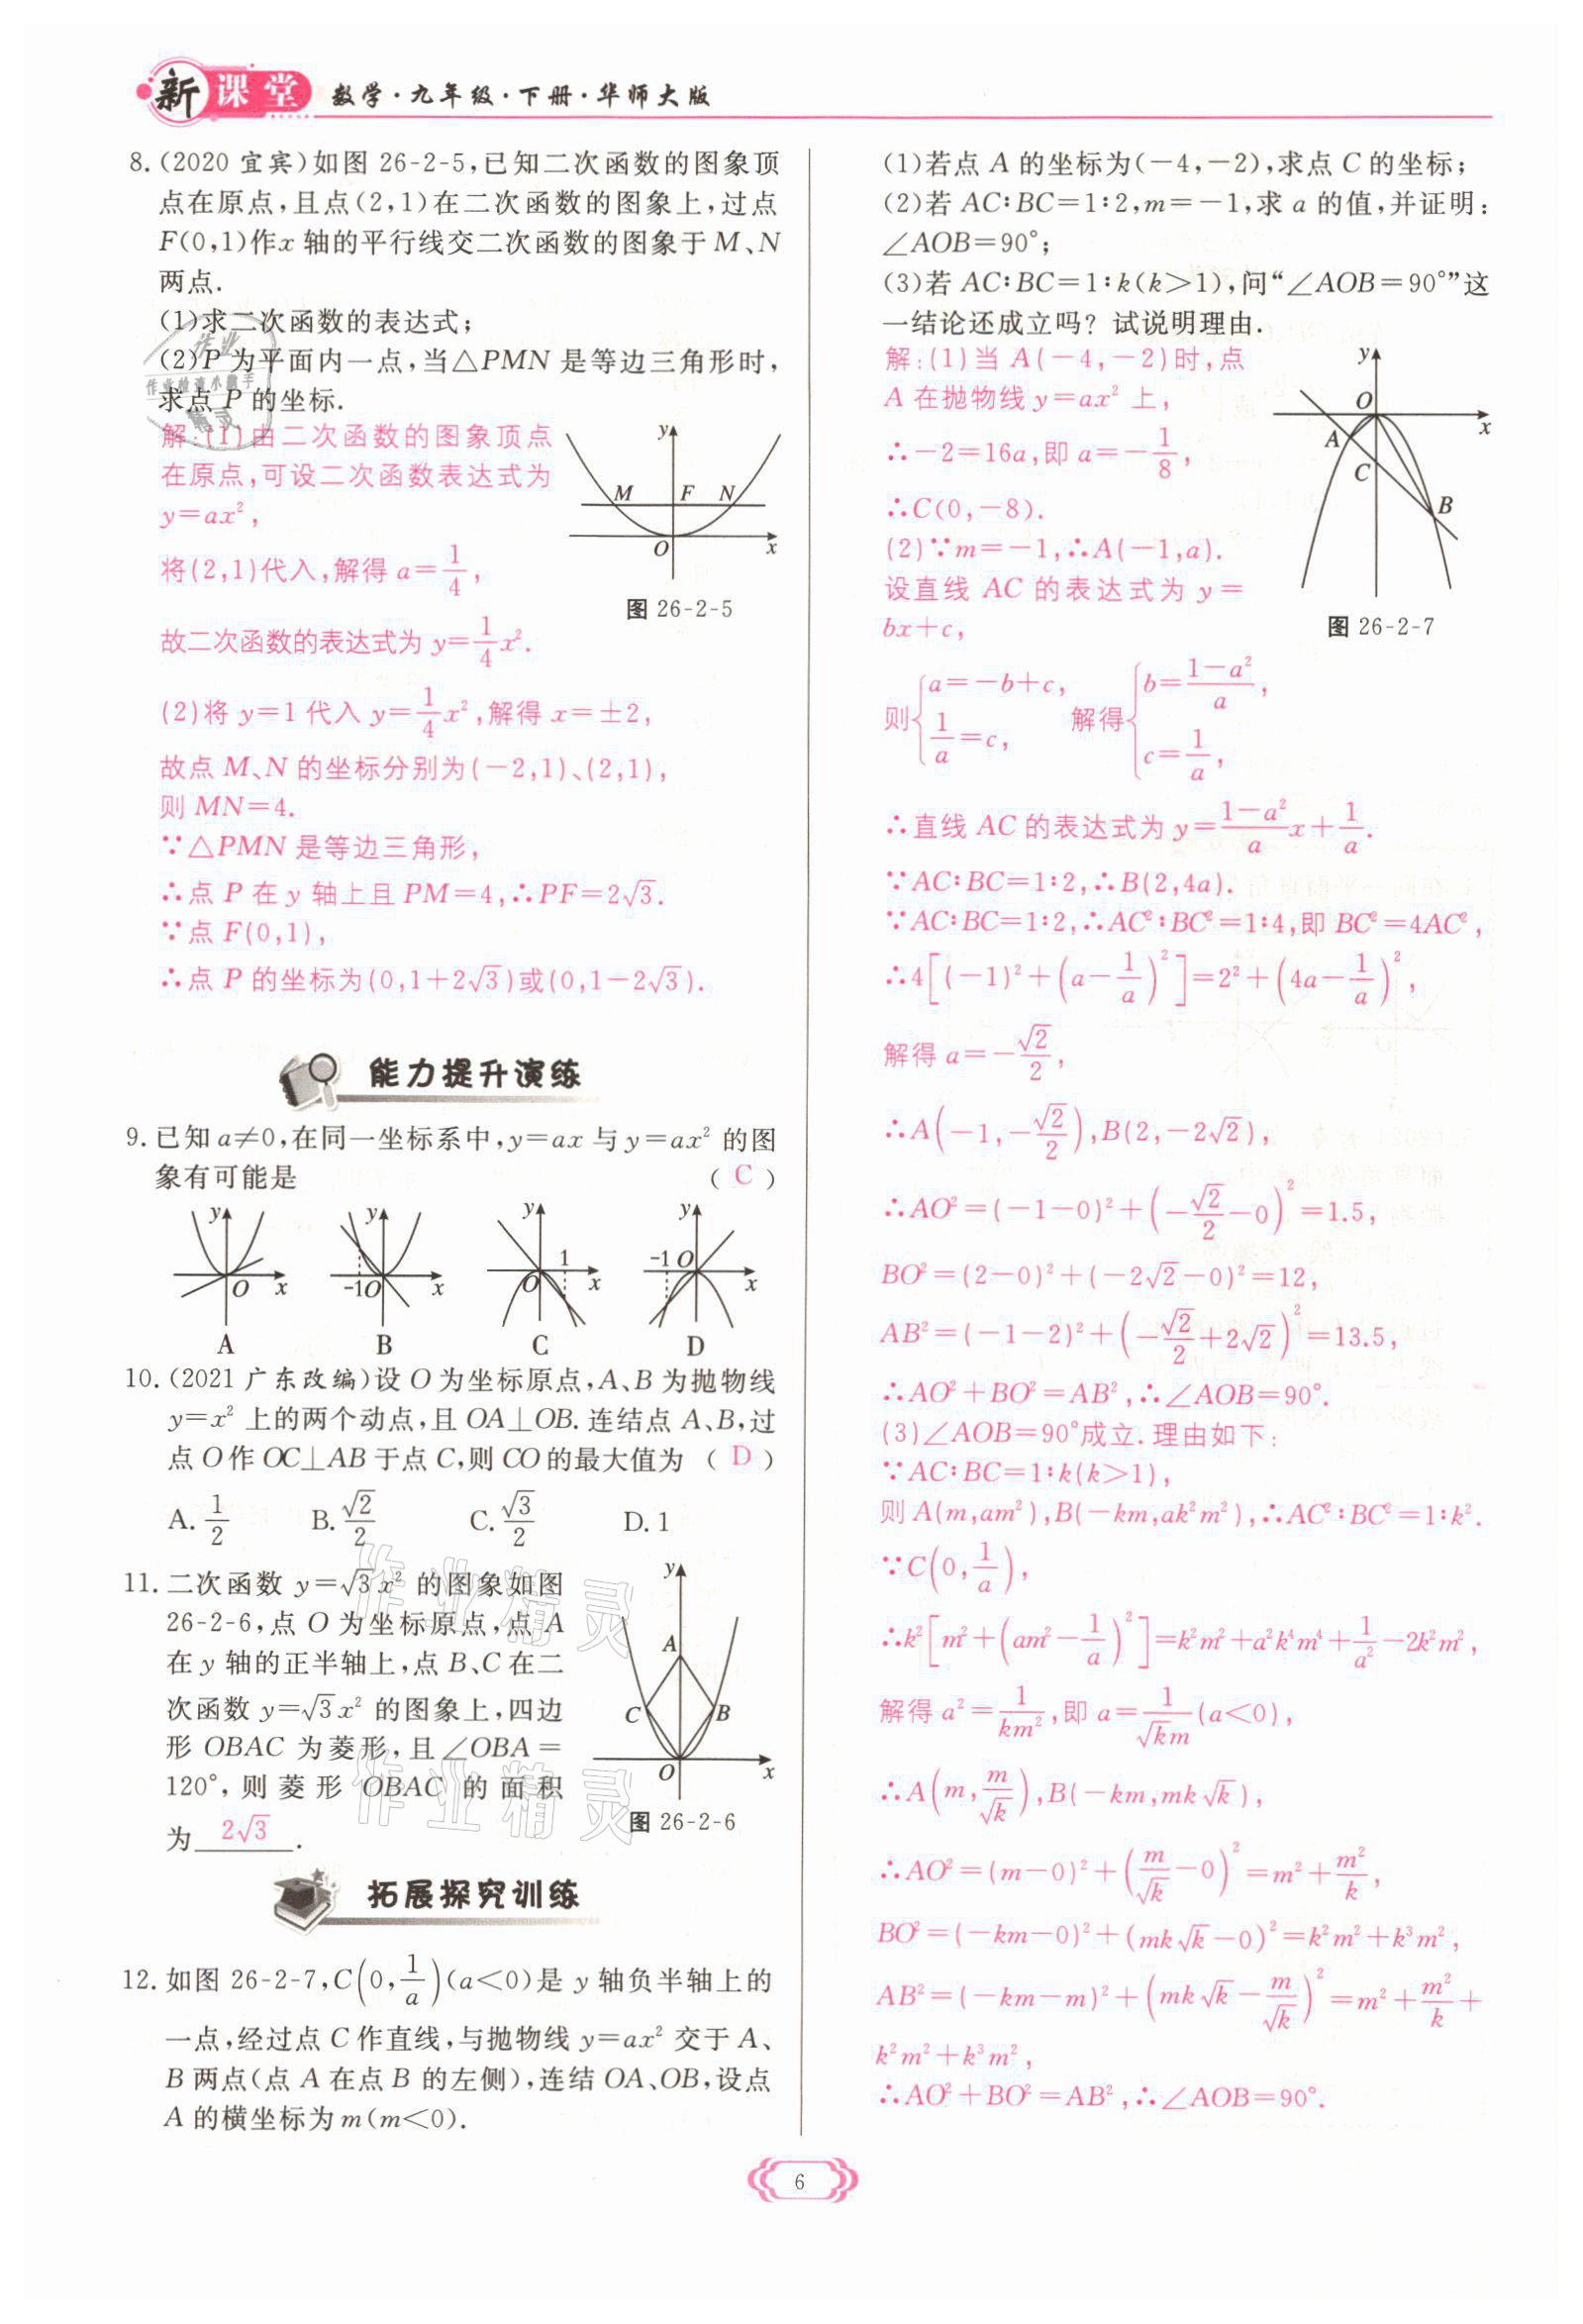 新课堂 数学·九年级·下册·华师大版
8.(2020 宜宾)如图 26-2-5,已知二次函数的图象顶
点在原点,且点(2,1)在二次函数的图象上,过点
F(0,1)作x 轴的平行线交二次函数的图象于 M、N
两点.
(1)求二次函数的表达式;
(2)P 为平面内一点,当△PMN 是等边三角形时,
求点 P 的坐标.
解:(1)由二次函数的图象顶点
在原点,可设二次函数表达式为
y=ax²,
将(2,1)代入,解得 a=1/4,
故二次函数的表达式为 y=1/4x².
y
M F N
O x
图 26-2-5
(2)将 y=1 代入 y=1/4x²,解得 x=±2,
故点 M、N 的坐标分别为(-2,1)、(2,1),
则 MN=4.
∵△PMN 是等边三角形,
∴点 P 在 y 轴上且 PM=4,∴PF=2√3.
∵点 F(0,1),
∴点 P 的坐标为(0,1+2√3)或(0,1-2√3).
能力提升演练
9.已知 a≠0,在同一坐标系中,y=ax 与 y=ax² 的图
象有可能是 ( C )
y y y y
O x -1 O x O 1 x -1 O x
A B C D
10.(2021 广东改编)设 O 为坐标原点,A、B 为抛物线
y=x² 上的两个动点,且 OA⊥OB. 连结点 A、B,过
点 O 作 OC⊥AB 于点 C,则 CO 的最大值为 ( D )
A. 1/2 B. √2/2 C. √3/2 D. 1
11. 二次函数 y=√3x² 的图象如图
26-2-6,点 O 为坐标原点,点 A
在 y 轴的正半轴上,点 B、C 在二
次函数 y=√3x² 的图象上,四边
形 OBAC 为菱形,且∠OBA=
120°,则菱形 OBAC 的面积
为 2√3 .
y
A
C B
O x
图 26-2-6
拓展探究训练
12. 如图 26-2-7,C(0,1/a)(a<0)是 y 轴负半轴上的
一点,经过点 C 作直线,与抛物线 y=ax² 交于 A、
B 两点(点 A 在点 B 的左侧),连结 OA、OB,设点
A 的横坐标为 m(m<0).
(1)若点 A 的坐标为(-4,-2),求点 C 的坐标;
(2)若 AC∶BC=1∶2,m=-1,求 a 的值,并证明:
∠AOB=90°;
(3)若 AC∶BC=1∶k(k>1),问“∠AOB=90°”这
一结论还成立吗? 试说明理由.
解:(1)当 A(-4,-2)时,点
A 在抛物线 y=ax² 上,
∴-2=16a,即 a=-1/8,
∴C(0,-8).
(2)∵m=-1,∴A(-1,a).
设直线 AC 的表达式为 y=
bx+c,
y
O x
A
C
B
图 26-2-7
则{a=-b+c, 1/a=c, 解得{b=(1-a²)/a, c=1/a,
∴直线 AC 的表达式为 y=(1-a²)/a x+1/a.
∵AC∶BC=1∶2,∴B(2,4a).
∵AC∶BC=1∶2,∴AC²∶BC²=1∶4,即 BC²=4AC²,
∴4[(-1)²+(a-1/a)²]=2²+(4a-1/a)²,
解得 a=-√2/2,
∴A(-1,-√2/2),B(2,-2√2),
∴AO²=(-1-0)²+(-√2/2-0)²=1.5,
BO²=(2-0)²+(-2√2-0)²=12,
AB²=(-1-2)²+(-√2/2+2√2)²=13.5,
∴AO²+BO²=AB²,∴∠AOB=90°.
(3)∠AOB=90°成立. 理由如下:
∵AC∶BC=1∶k(k>1),
则 A(m,am²),B(-km,ak²m²),∴AC²∶BC²=1∶k².
∵C(0,1/a),
∴k²[m²+(am²-1/a)²]=k²m²+a²k⁴m⁴+1/a²-2k²m²,
解得 a²=1/km²,即 a=1/√km(a<0),
∴A(m,m/√k),B(-km,mk√k),
∴AO²=(m-0)²+(m/√k-0)²=m²+m²/k,
BO²=(-km-0)²+(mk√k-0)²=k²m²+k³m²,
AB²=(-km-m)²+(mk√k-m/√k)²=m²+m²/k+
k²m²+k³m²,
∴AO²+BO²=AB²,∴∠AOB=90°.
6
作业精灵
作业精灵